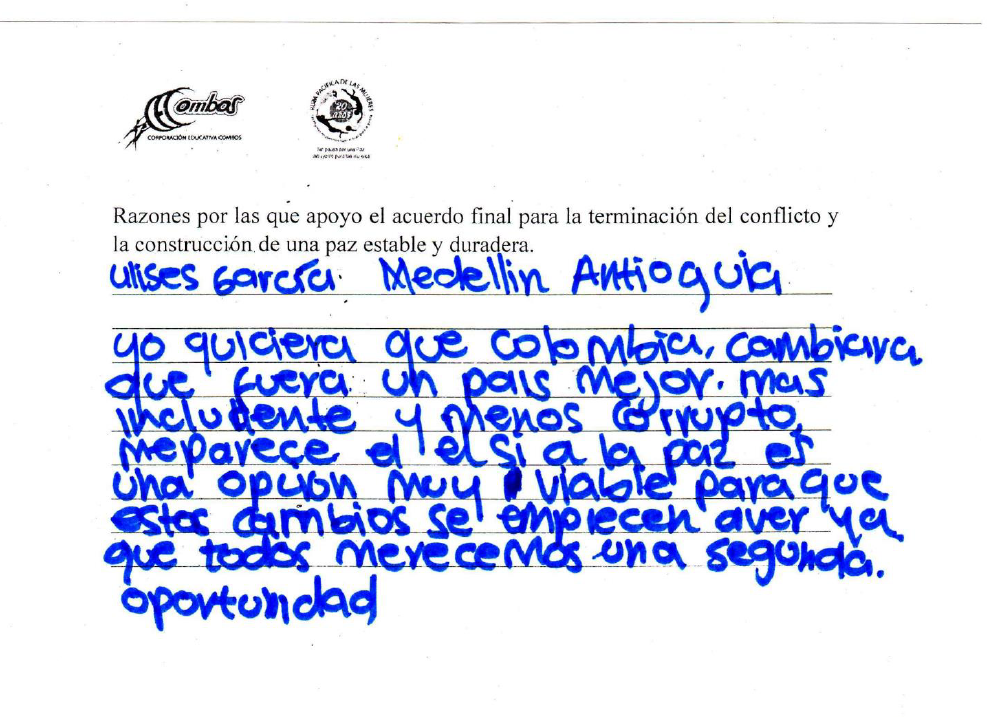 Combos
CORPORACIÓN EDUCATIVA COMBOS
RUTA PACÍFICA DE LAS MUJERES
20
AÑOS
Razones por las que apoyo el acuerdo final para la terminación del conflicto y
la construcción de una paz estable y duradera.
Ulises García. Medellin Antioquia
yo quiciera que colombia, cambiara
que fuera un pais mejor. mas
includente y menos corrupto,
meparece el el si a la paz es
una opcion muy viable para que
estos cambios se empiecen aver ya
que todos merecemos una segunda.
oportunidad